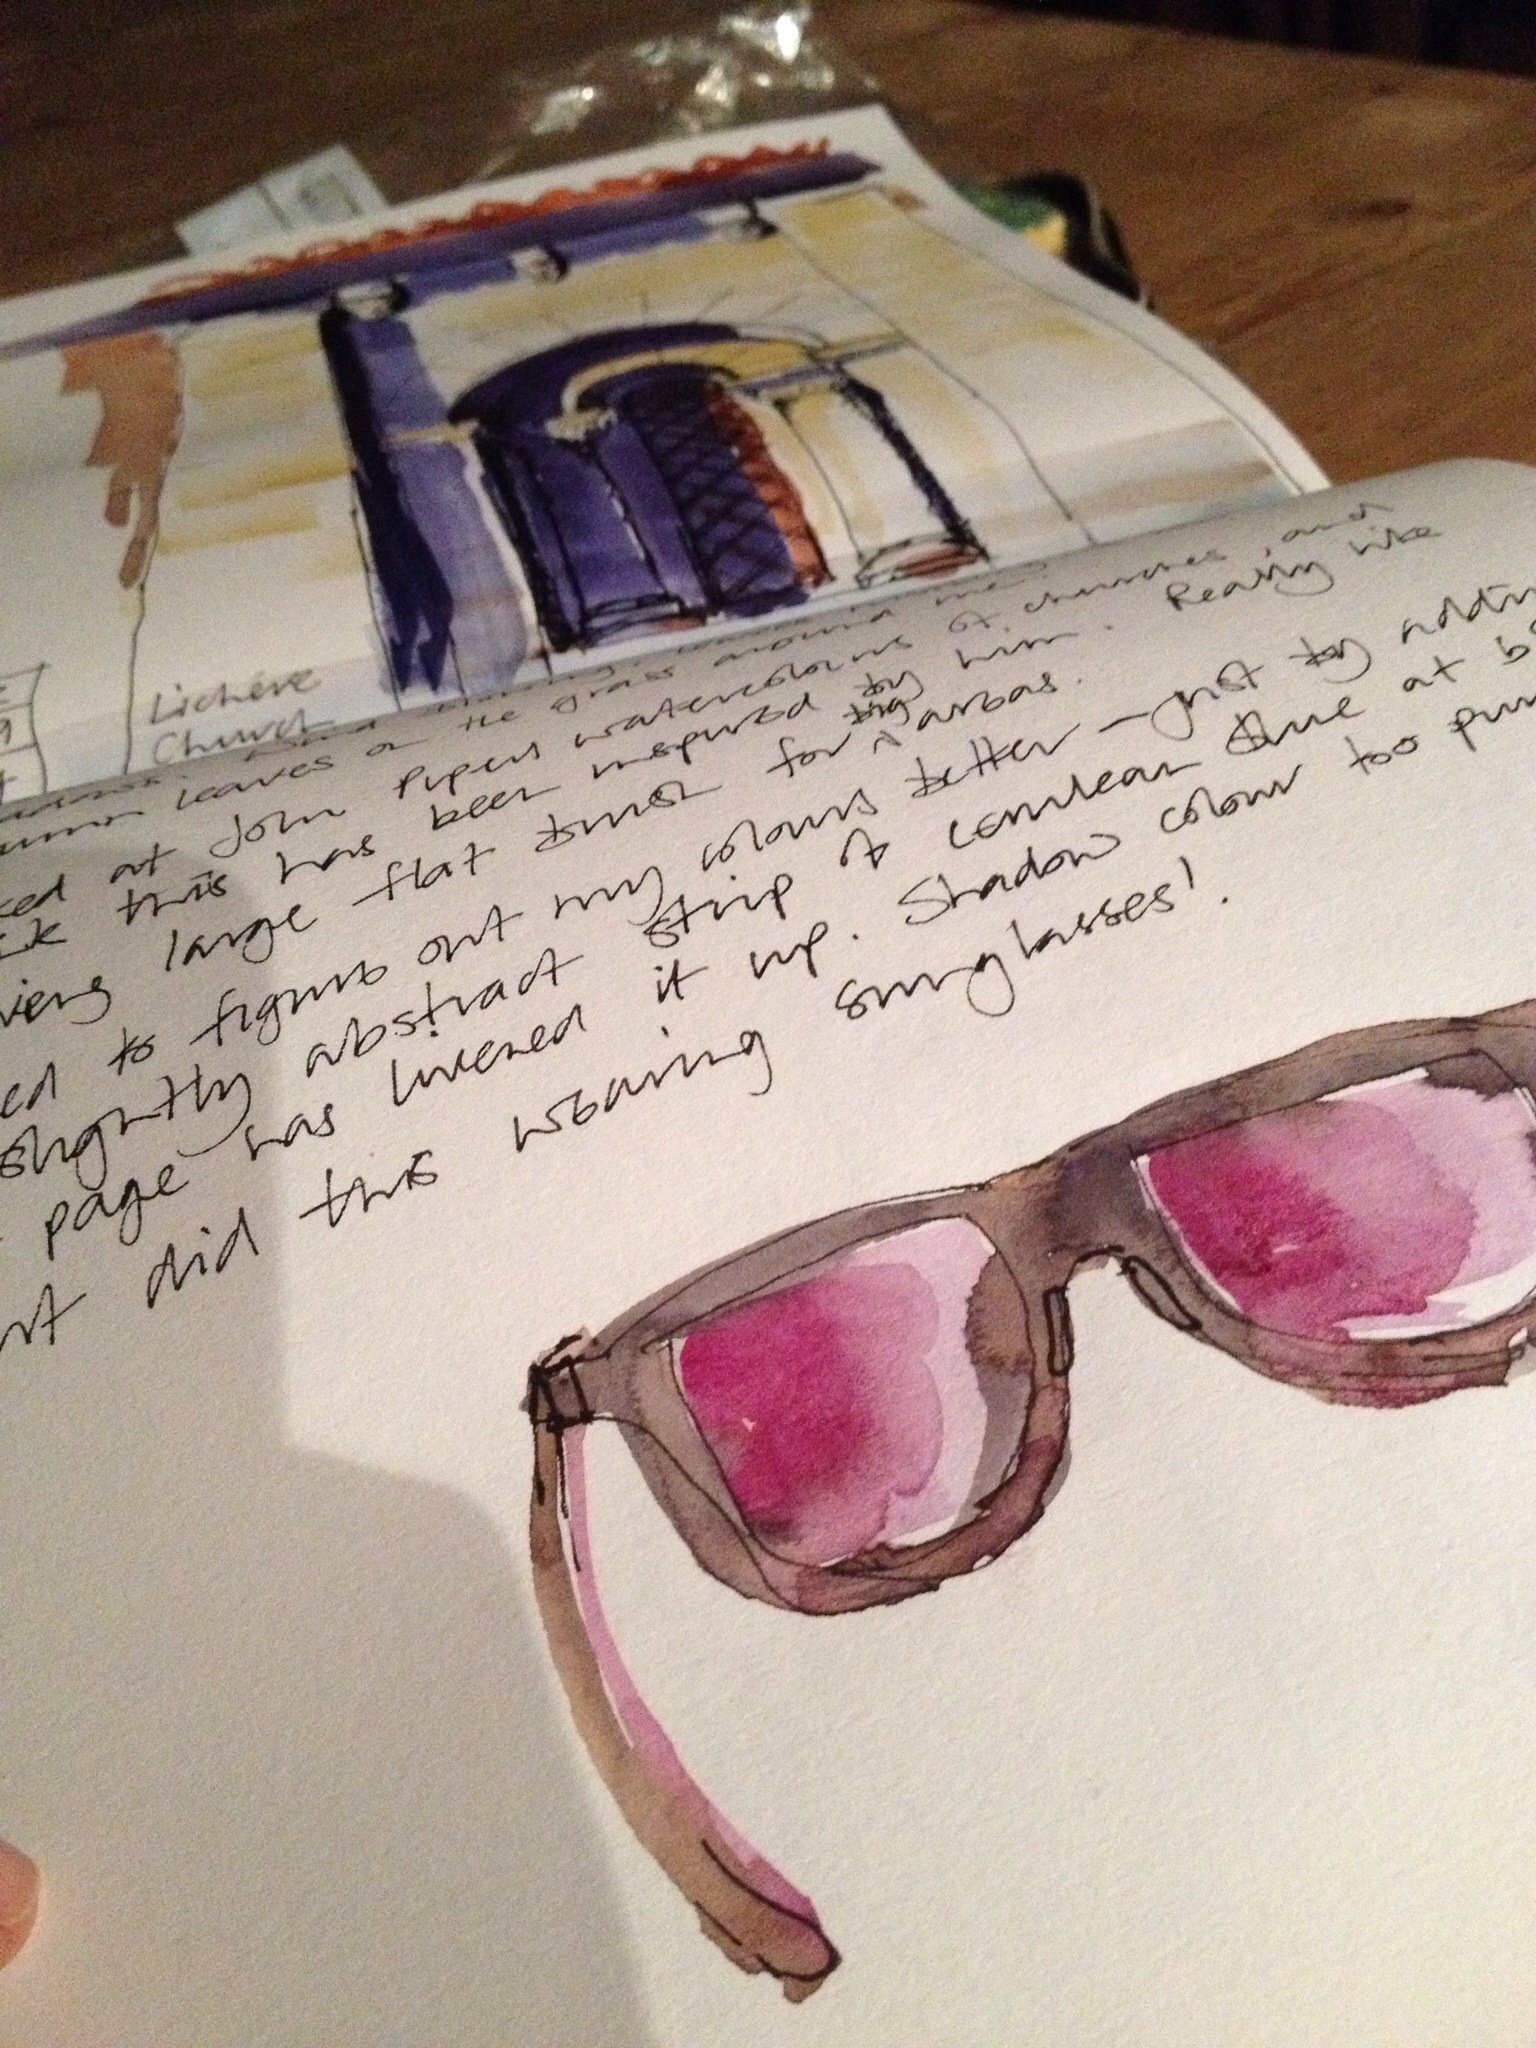 Lichère
Church
leaves on the grass around me.
at John Pipers watercolours of churches, and
this has been inspired by him. Really like
large flat brush for big areas.
to figure out my colours better - just by
slightly abstract strip of cerulean blue at
page has livened it up. Shadow colour too
did this wearing sunglasses!